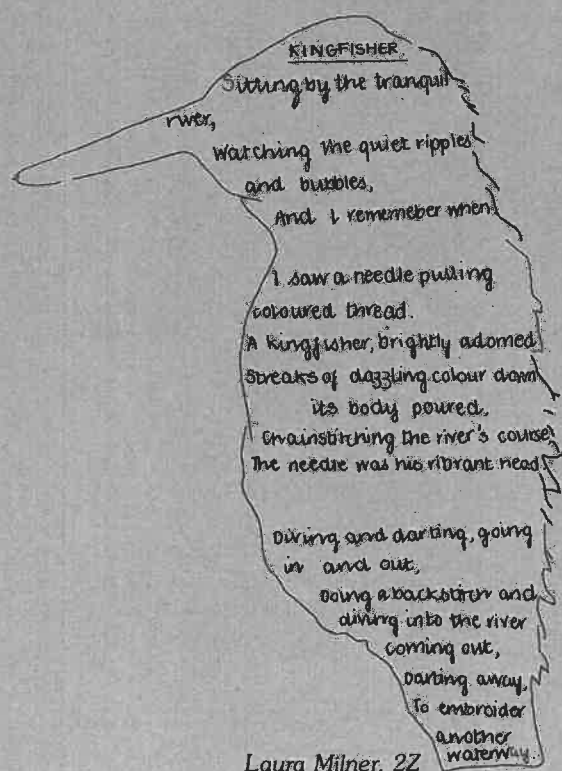 KINGFISHER
Sitting by the tranquil
river,
Watching the quiet ripples
and bubbles,
And I rememeber when
I saw a needle pulling
coloured thread.
A kingfisher, brightly adorned
Streaks of dazzling colour down
its body poured,
Chainstitching the river's course,
The needle was his vibrant head.
Diving and darting, going
in and out,
Doing a backstitch and
diving into the river
coming out,
Darting away,
To embroider
another
waterway.
Laura Milner, 2Z